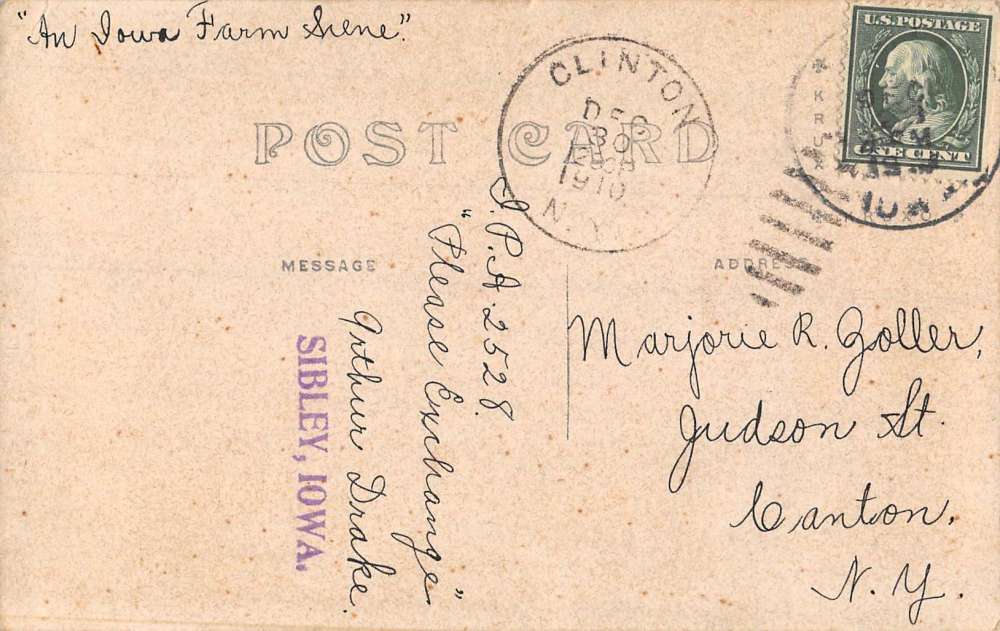 "An Iowa Farm Scene."
POST CARD
CLINTON
DEC
30
1910
N.Y.
U.S. POSTAGE
ONE CENT
IOWA
MESSAGE
ADDRESS
I.P.A. 2528.
"Please Exchange"
Arthur Drake.
SIBLEY, IOWA.
Marjorie R. Zoller,
Judson St.
Canton,
N.Y.